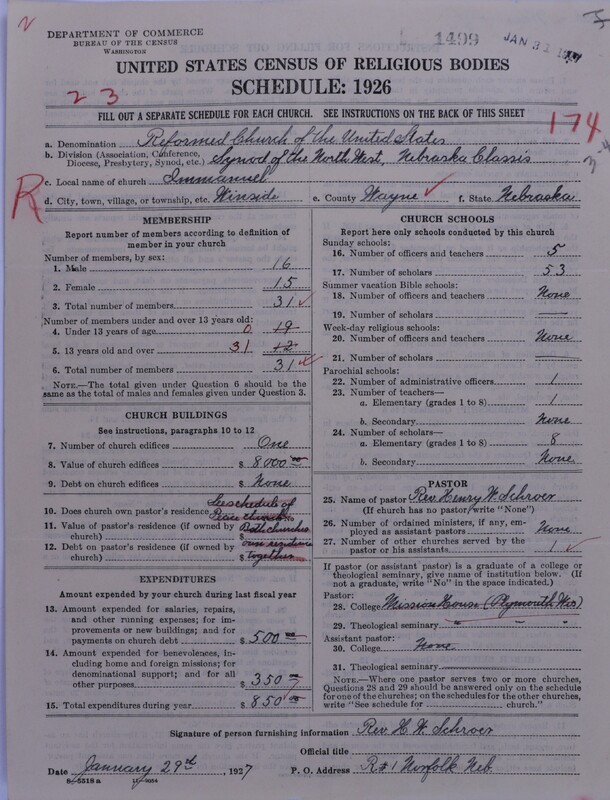 DEPARTMENT OF COMMERCE
BUREAU OF THE CENSUS
WASHINGTON
1499
JAN 31
UNITED STATES CENSUS OF RELIGIOUS BODIES
SCHEDULE: 1926
2 3
FILL OUT A SEPARATE SCHEDULE FOR EACH CHURCH. SEE INSTRUCTIONS ON THE BACK OF THIS SHEET
174
a. Denomination Reformed Church of the United States
b. Division (Association, Conference, Diocese, Presbytery, Synod, etc.) Synod of the North West, Nebraska Classis
R
c. Local name of church Immanuel
d. City, town, village, or township, etc. Winside e. County Wayne f. State Nebraska
MEMBERSHIP
Report number of members according to definition of
member in your church
Number of members, by sex:
1. Male 16
2. Female 15
3. Total number of members 31
Number of members under and over 13 years old:
4. Under 13 years of age 0 19
5. 13 years old and over 31 12
6. Total number of members 31
NOTE.—The total given under Question 6 should be
the same as the total of males and females given under Question 3.
CHURCH BUILDINGS
See instructions, paragraphs 10 to 12
7. Number of church edifices One
8. Value of church edifices $ 8000 00
9. Debt on church edifices $ None
10. Does church own pastor's residence See schedule of
11. Value of pastor's residence (if owned by Both churches
church) $ own residence
12. Debt on pastor's residence (if owned by
church) $ together
EXPENDITURES
Amount expended by your church during last fiscal year
13. Amount expended for salaries, repairs,
and other running expenses; for im-
provements or new buildings; and for
payments on church debt $ 500
14. Amount expended for benevolences, in-
cluding home and foreign missions; for
denominational support; and for all
other purposes $ 350
15. Total expenditures during year $ 850
CHURCH SCHOOLS
Report here only schools conducted by this church
Sunday schools:
16. Number of officers and teachers 5
17. Number of scholars 53
Summer vacation Bible schools:
18. Number of officers and teachers None
19. Number of scholars
Week-day religious schools:
20. Number of officers and teachers None
21. Number of scholars
Parochial schools:
22. Number of administrative officers 1
23. Number of teachers—
a. Elementary (grades 1 to 8) 1
b. Secondary None
24. Number of scholars—
a. Elementary (grades 1 to 8) 8
b. Secondary None
PASTOR
25. Name of pastor Rev. Henry W. Schroer
(If church has no pastor, write "None")
26. Number of ordained ministers, if any, em-
ployed as assistant pastors None
27. Number of other churches served by the
pastor or his assistants 1
If pastor (or assistant pastor) is a graduate of a college or
theological seminary, give name of institution below. (If
not a graduate, write "No" in the space indicated.)
Pastor:
28. College Mission House (Plymouth Wis)
29. Theological seminary " "
Assistant pastor:
30. College None
31. Theological seminary
NOTE.—Where one pastor serves two or more churches,
Questions 28 and 29 should be answered only on the schedule
for one of the churches; on the schedules for the other churches,
write "See schedule for church."
Signature of person furnishing information Rev. H. W. Schroer
Official title
Date January 29th, 1927 P. O. Address R#1 Norfolk Neb.
8-5518 a